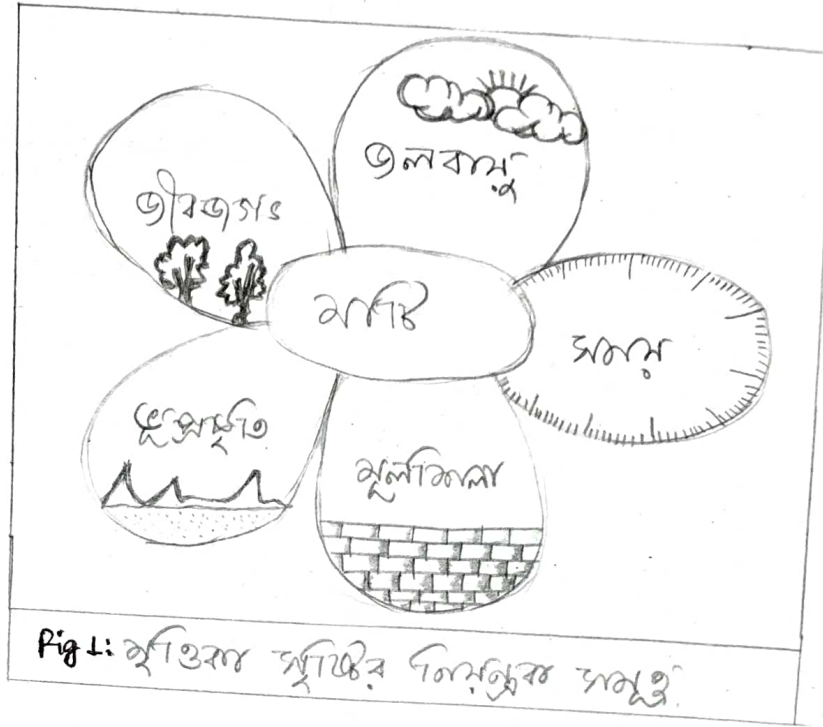 জলবায়ু
জীবজগৎ
মাটি
সময়
ভূপ্রকৃতি
মূলশিলা
Fig 1: মৃত্তিকা সৃষ্টির নিয়ন্ত্রক সমূহ